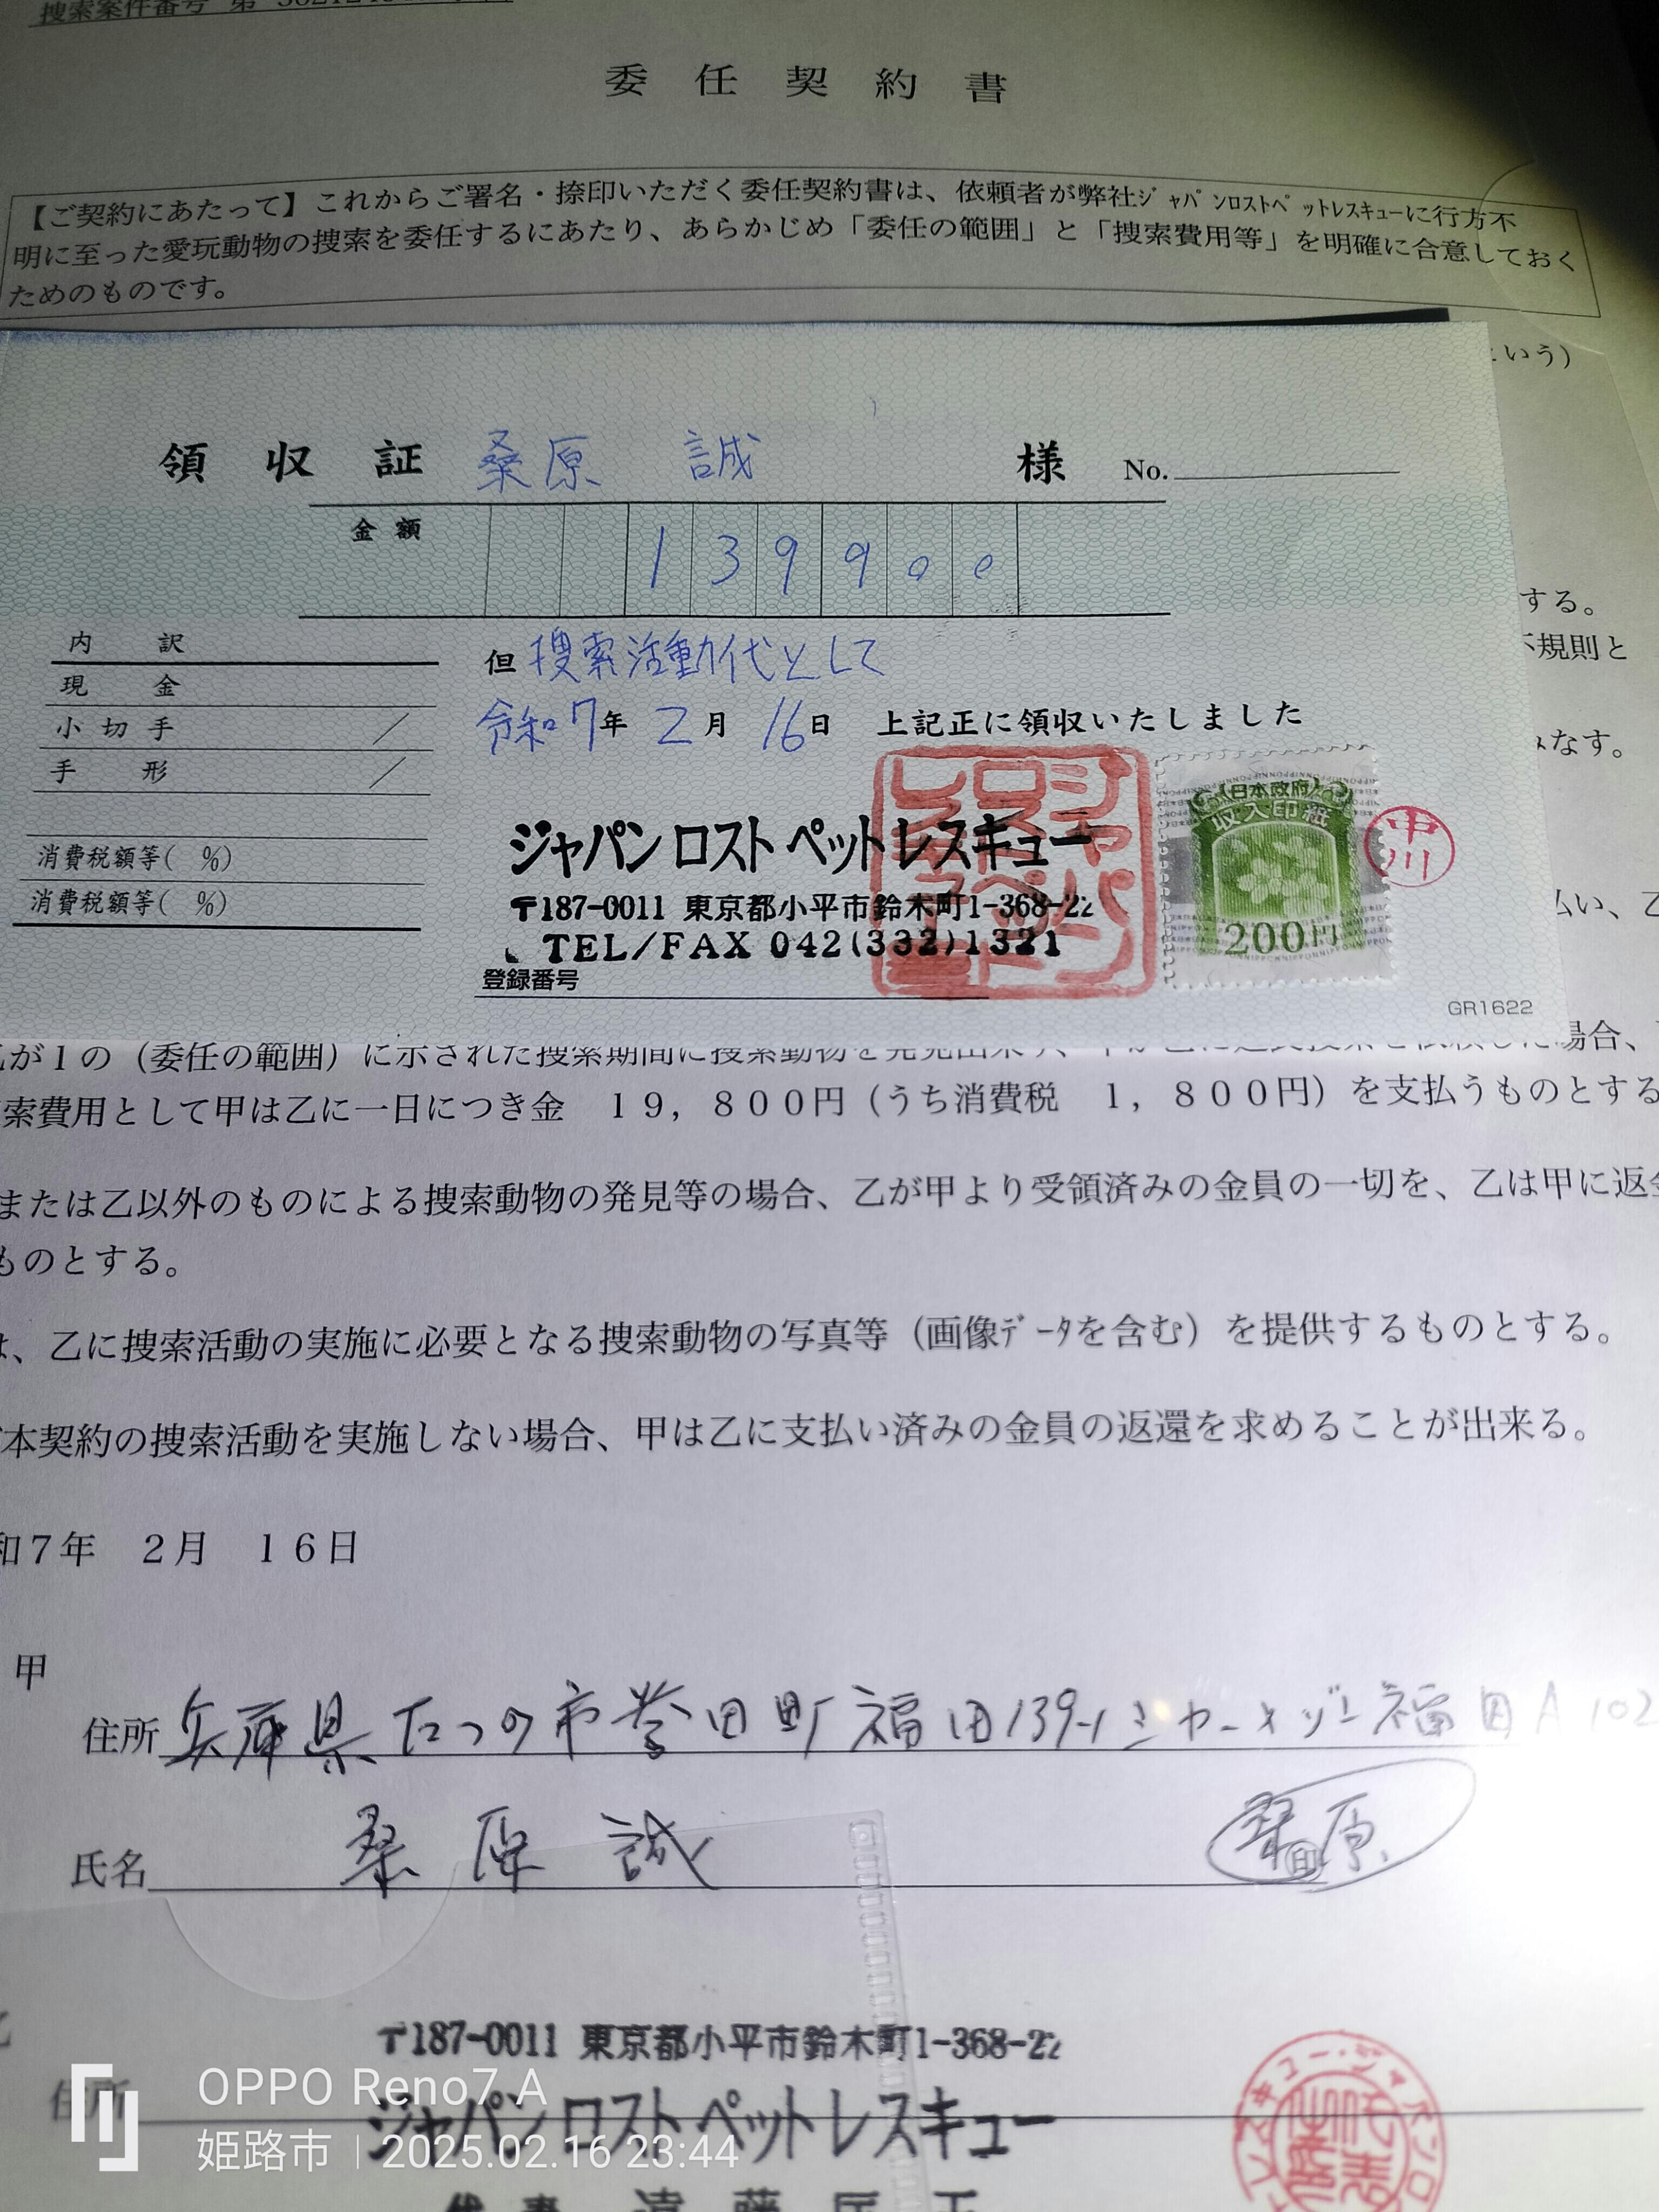 捜索案件番号 第
委任契約書
【ご契約にあたって】これからご署名・捺印いただく委任契約書は、依頼者が弊社ｼﾞｬﾊﾟﾝﾛｽﾄﾍﾟｯﾄﾚｽｷｭｰに行方不
明に至った愛玩動物の捜索を委任するにあたり、あらかじめ「委任の範囲」と「捜索費用等」を明確に合意しておく
ためのものです。
いう）
領収証 桑原 誠 様 No.
金額 139900
する。
規則と
内訳
現金
小切手
手形
消費税額等( %)
消費税額等( %)
但 捜索活動代として
令和7年 2月 16日 上記正に領収いたしました
なす。
ジャパンロストペットレスキュー
〒187-0011 東京都小平市鈴木町1-368-22
TEL/FAX 042(332)1321
登録番号
日本政府
収入印紙
200円
中川
払い、乙
GR1622
が１の（委任の範囲）に示された捜索期間に捜索動物を発見出来 場合、
索費用として甲は乙に一日につき金 １９，８００円（うち消費税 １，８００円）を支払うものとする
または乙以外のものによる捜索動物の発見等の場合、乙が甲より受領済みの金員の一切を、乙は甲に返金
ものとする。
、乙に捜索活動の実施に必要となる捜索動物の写真等（画像ﾃﾞｰﾀを含む）を提供するものとする。
本契約の捜索活動を実施しない場合、甲は乙に支払い済みの金員の返還を求めることが出来る。
和７年 ２月 １６日
甲
住所 兵庫県たつの市誉田町福田139-1 シャーメゾン福田A 102
氏名 桑原 誠 桑原 印
〒187-0011 東京都小平市鈴木町1-368-22
住所
ジャパンロストペットレスキュー
代表 遠藤
OPPO Reno7 A
姫路市 | 2025.02.16 23:44